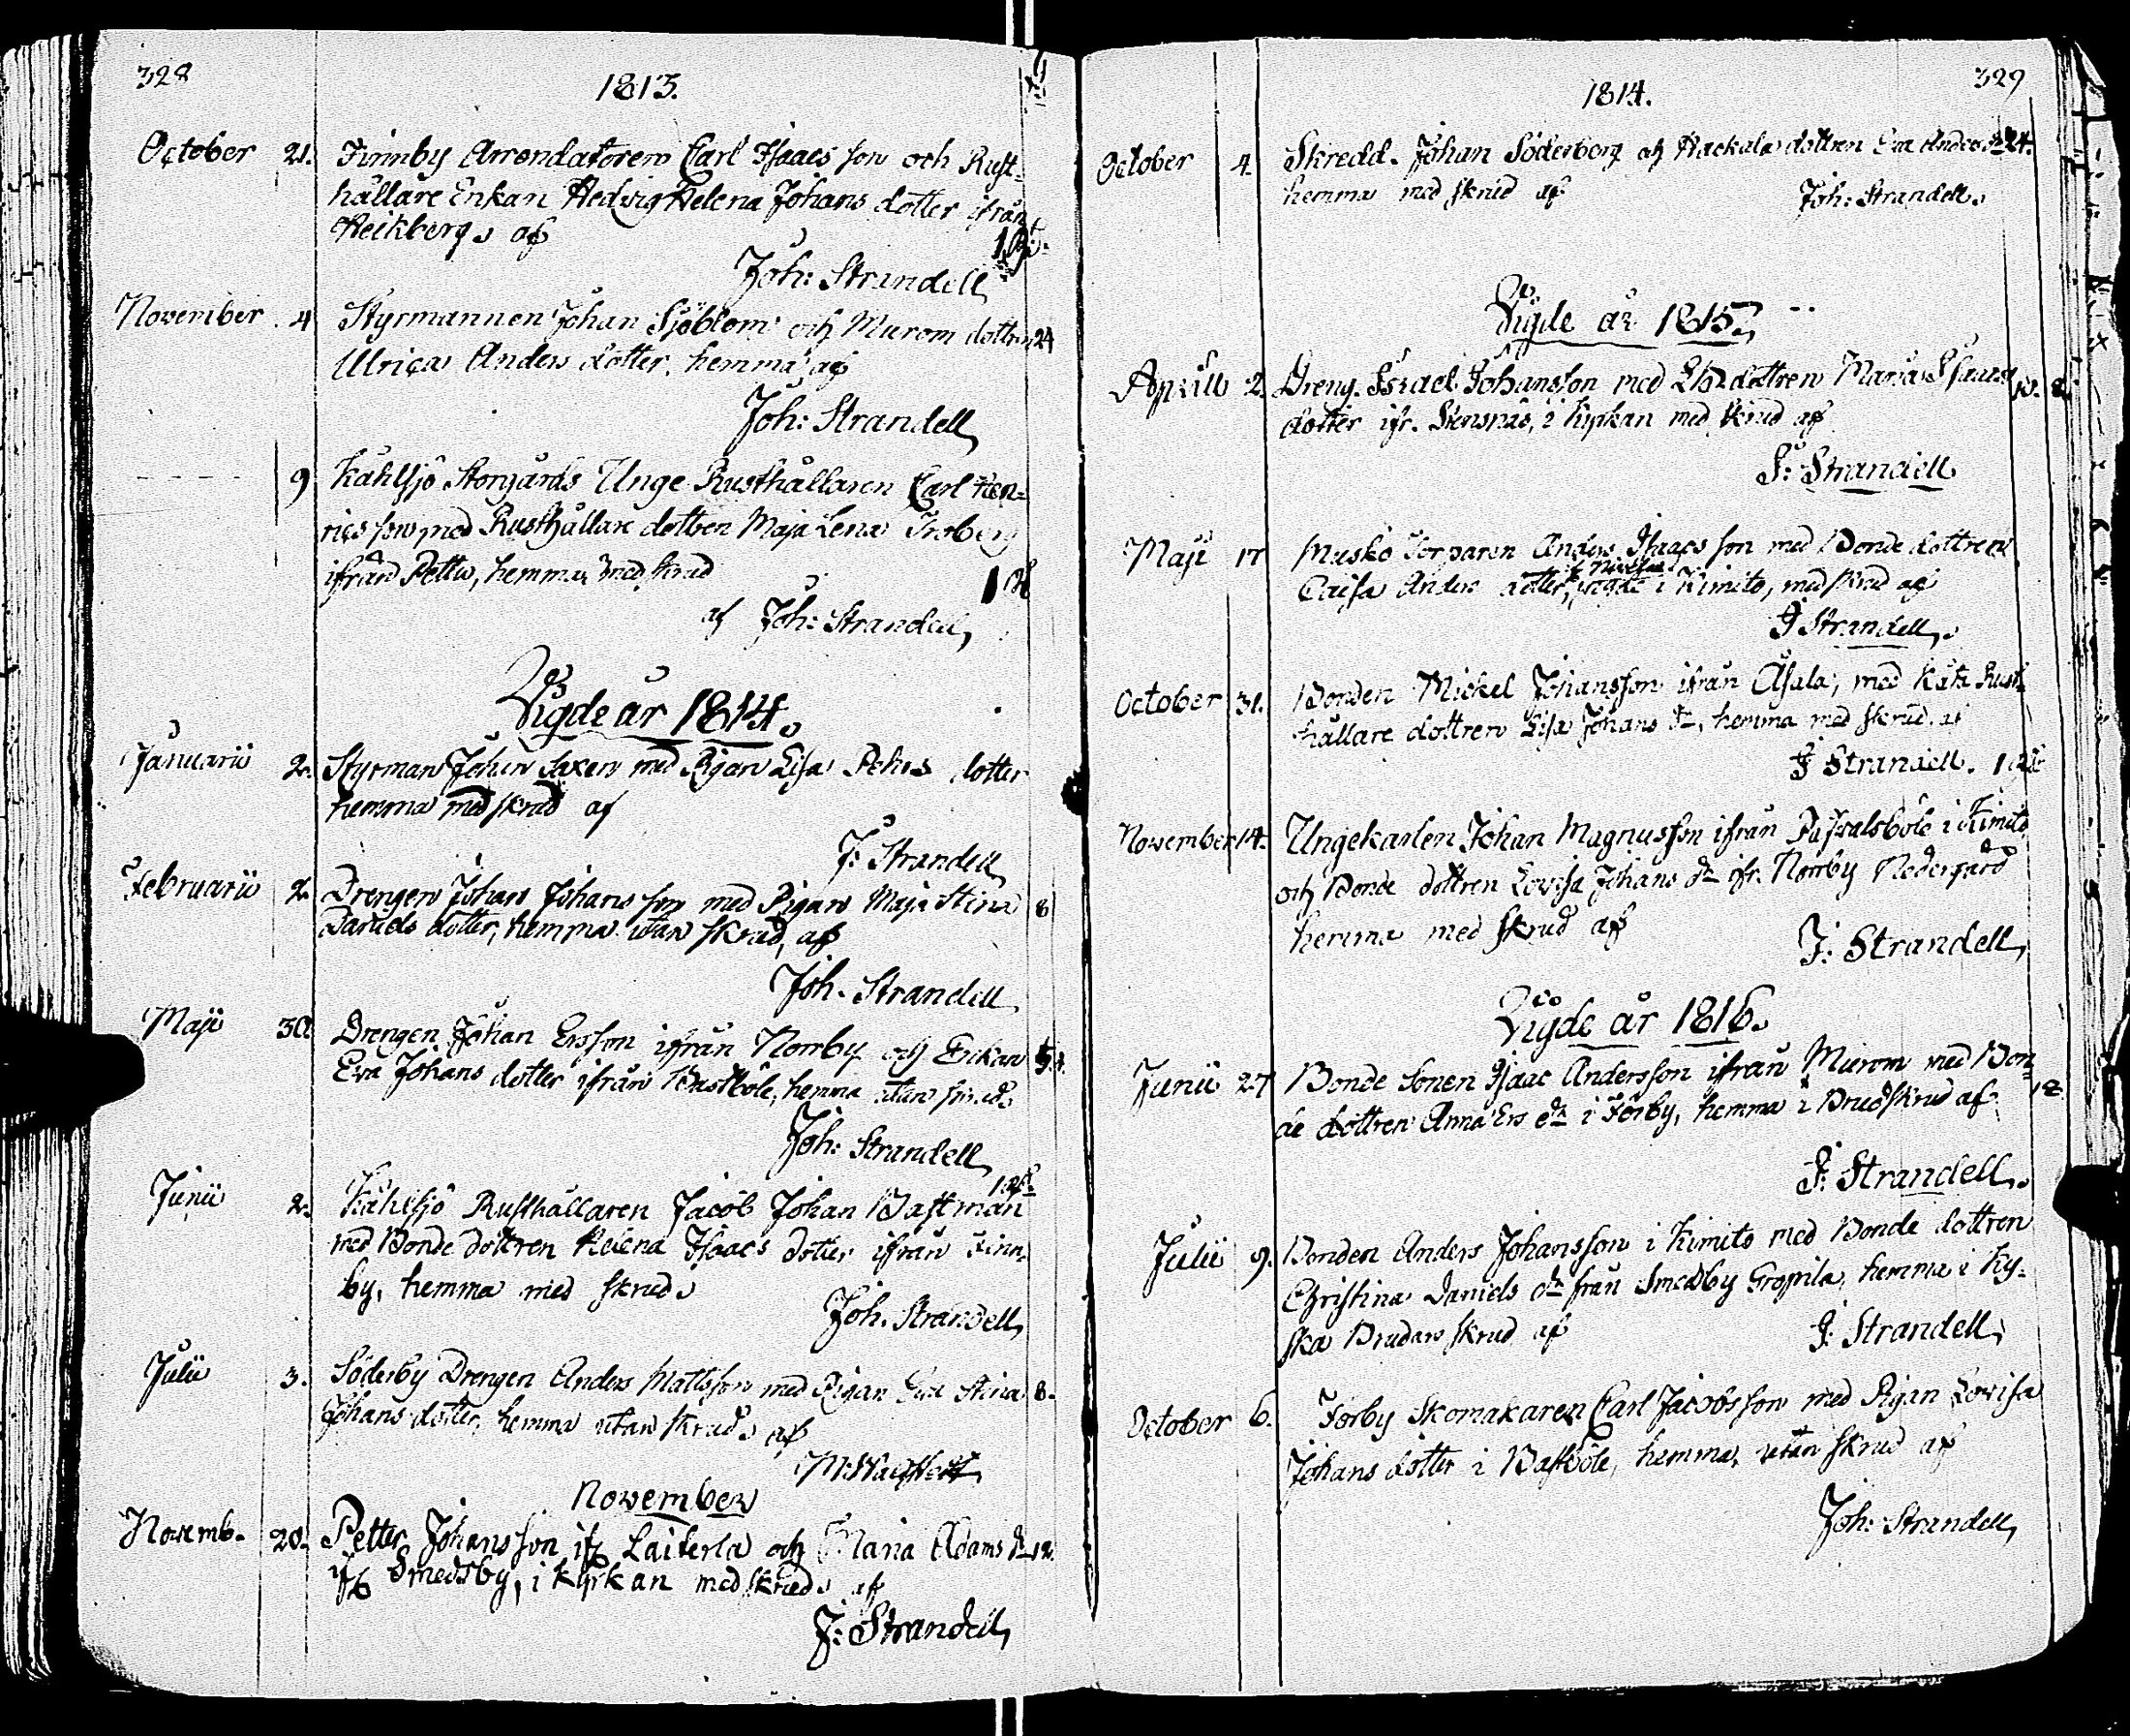 328
1813.
October 21. Finnby Arrendatoren Carl Isaacs son och Rust-
hållare Enkan Hedvig Helena Johans dotter ifrån
Heikberg. af
Joh: Strandell
November 4 Styrmannen Johan Sjöblom och Murom dottren 24
Ulrica Anders dotter, hemma af
Joh: Strandell
9 Kåhlsjö Storgårds Unge Rusthållaren Carl Hen-
rics son med Rusthållare dottren Maja Lena Froberg
ifrån Pettu, hemma med skrud
af Joh: Strandell,
Vigde år 1814.
Januarii 2. Styrman Johan Saxen med Pigan Lisa Pehrs dotter
hemma med skrud af
J: Strandell
Februarii 2. Drengen Johan Johans son med Pigan Maja Stina 8
Daniels dotter, hemma utan skrud, af
Joh. Strandell
Maji 30. Drengen Johan Ersson ifrån Norrby och Enkan
Eva Johans dotter ifrån Bastböle, hemma utan skrud.
Joh: Strandell
Junii 2. Kåhlsjö Rusthållaren Jacob Johan Bastman
med Bonde dottren Helena Isaacs dotter ifrån Finn-
by, hemma med skrud.
Joh. Strandell,
Julii 3. Söderby Drengen Anders Mattsson med Pigan Eva Stina 8.
Johans dotter, hemma utan skrud. af
November
Novemb. 20. Petter Johansson ifr Laiterla och Maria Adams dr 12.
ifr Smedsby, i kyrkan med skrud. af
J: Strandell,
329
1814.
October 4. Skredd. Johan Söderberg och Hackala dottren Eva Anders dr 24.
hemma med skrud af Joh: Strandell.
Vigde år 1815.
Aprill 2. Dreng. Israel Johansson med dottren Maria Isaacs
dotter ifr. Stensnäs, i kyrkan med skrud af
J: Strandell
Maji 17 Muskö Torparen Anders Isaacs son med Bonde dottren
Caisa Anders dotter, vigde i Kimito, med skrud af
J Strandell.
October 31. Bonden Mickel Johansson ifrån Åsala, med Rust-
hållare dottren Lisa Johans dr, hemma med skrud. af
J Strandell.
November 14. Ungekarlen Johan Magnusson ifrån i Kimito
och Bonde dottren Lovisa Johans dr ifr. Norrby Nedergård
hemma med skrud af
J: Strandell,
Vigde år 1816.
Junii 27 Bonde Sonen Isaac Andersson ifrån Murom med Bon-
de dottren Anna Ers dr i Förby, hemma i Brudskrud af 12
J: Strandell.
Julii 9. Bonden Anders Johansson i Kimito med Bonde dottren
Christina Daniels dr från Smedsby Gropila, hemma i Ky-
ska Brudars skrud af
J: Strandell,
October 6. Förby Skomakaren Carl Jacobsson med Pigan Lovisa
Johans dotter i Bastböle, hemma, utan skrud af
Joh: Strandell,